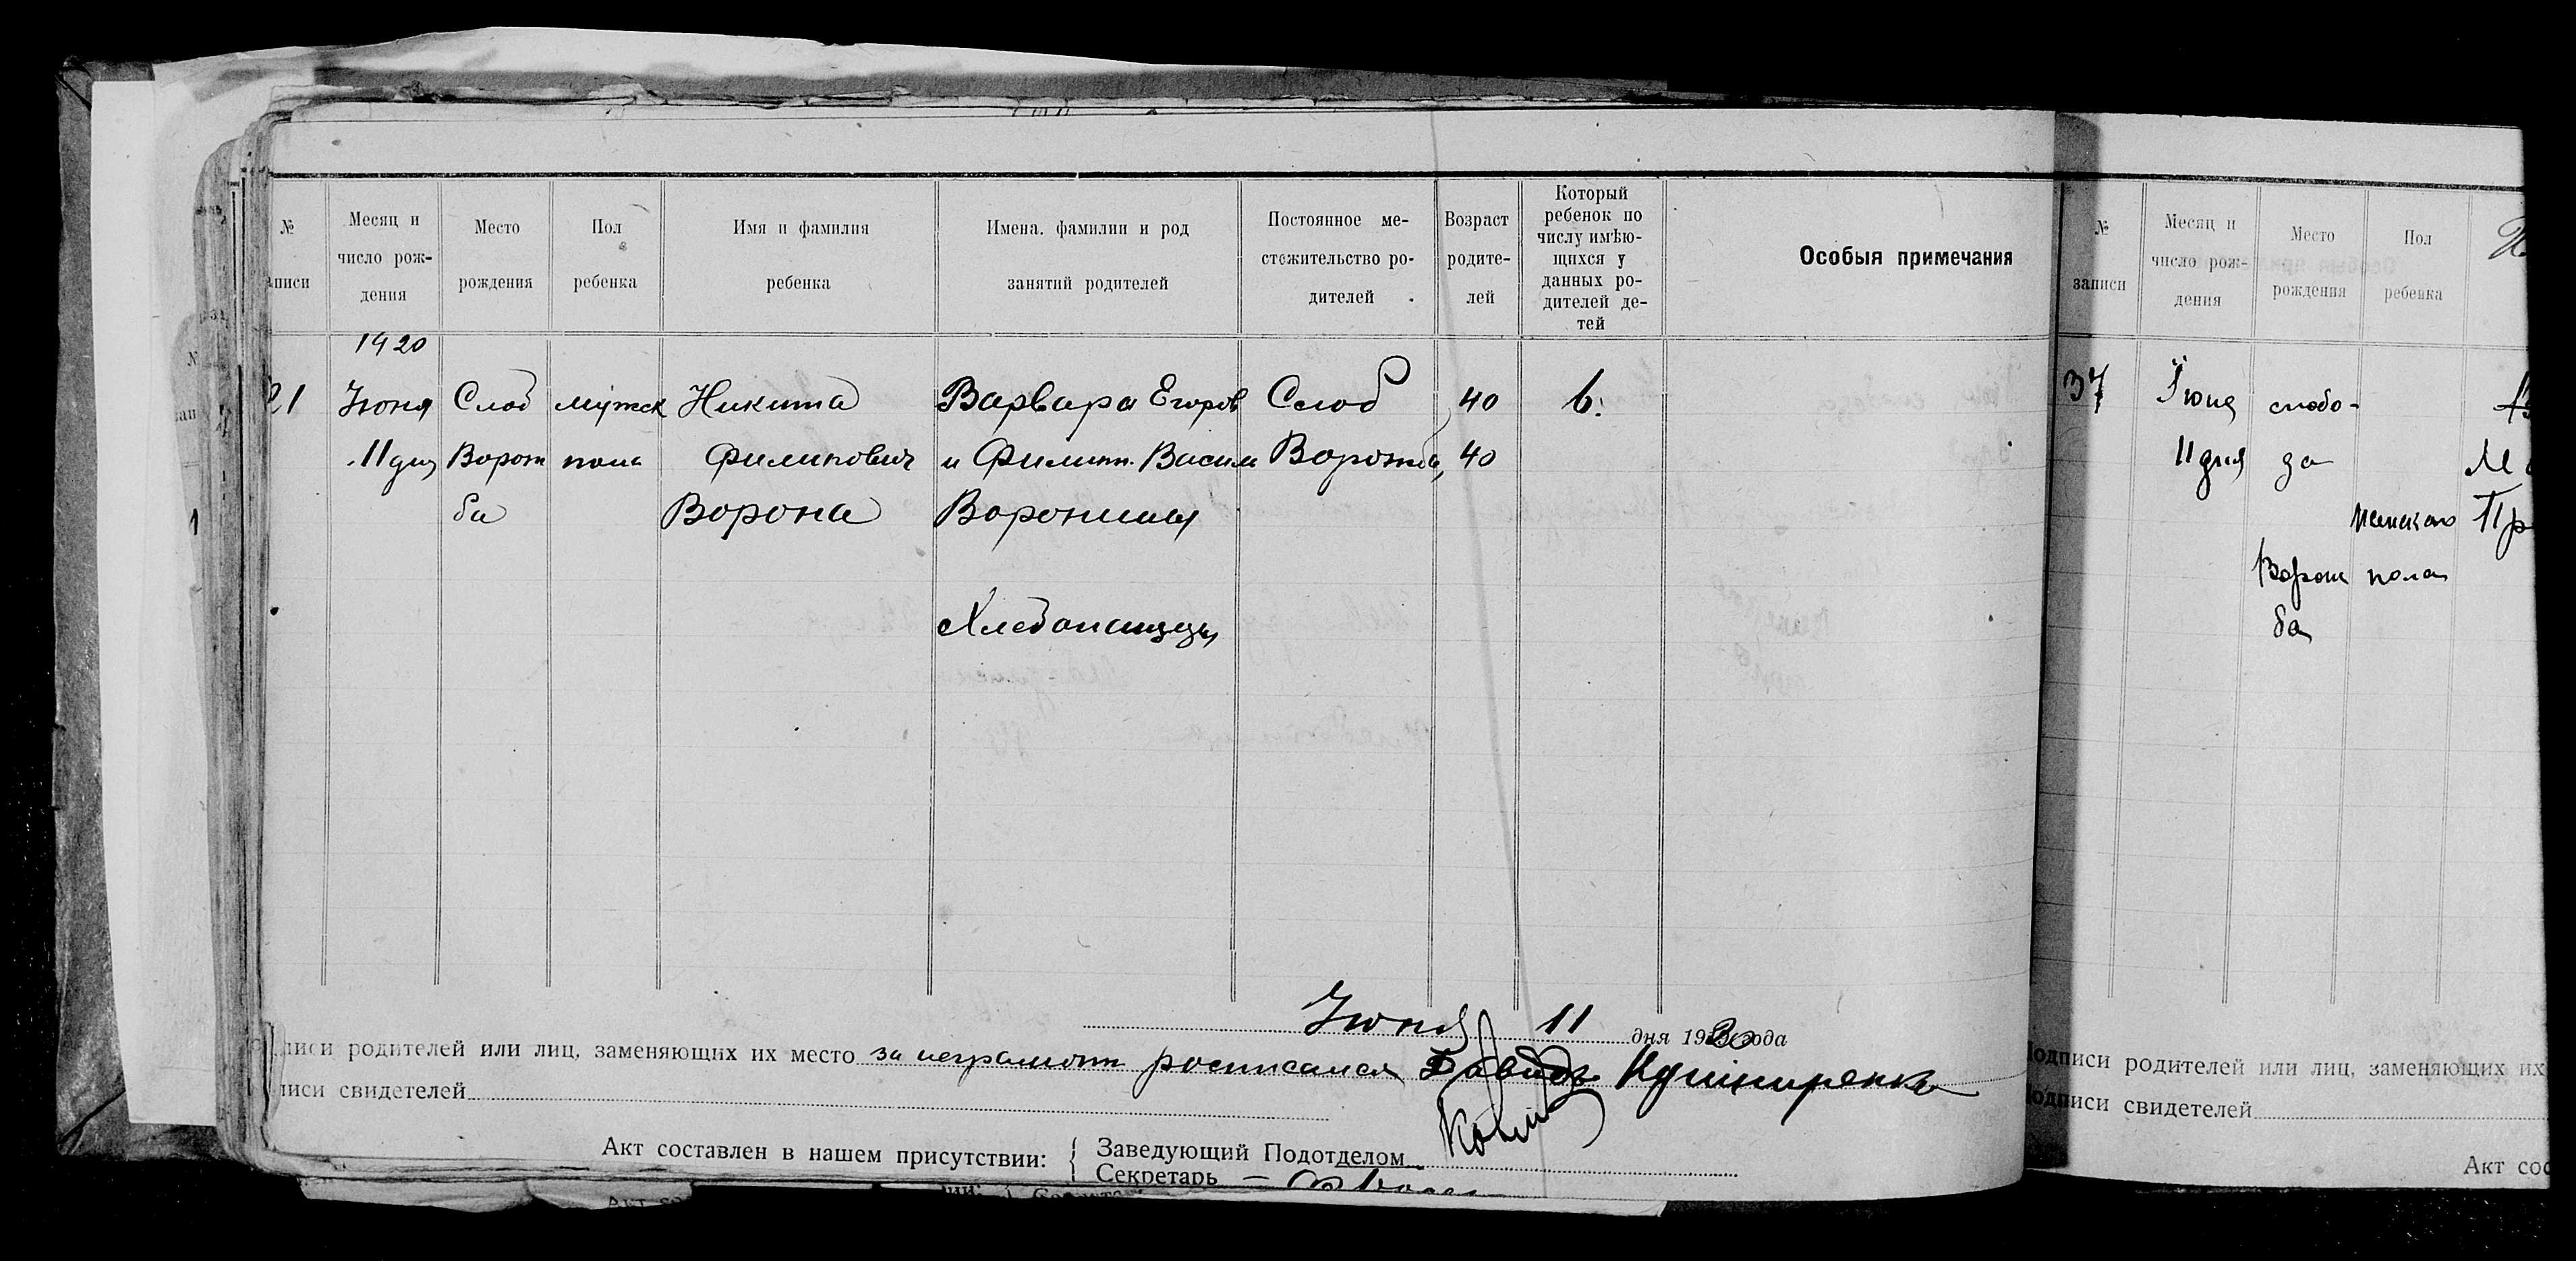 №
аписи
Месяц и
число рож-
дения
Место
рождения
Пол
ребенка
Имя и фамилия
ребенка
Имена. фамилии и род
занятий родителей
Постоянное ме-
стожительство ро-
дителей
Возраст
родите-
лей
Который
ребенок по
числу имѣю-
щихся у
данных ро-
дителей де-
тей
Особыя примечания
1920
21 Июня Слоб мужск Никита Варвара Егоров Слоб 40 6.
11 дня Ворож пола Филипович и Филип. Васил Ворожба, 40
ба Ворона Воронины
Хлебопашцы
Июня 11 дня 1920 года
писи родителей или лиц, заменяющих их место за неграмотн росписался Давидъ Кушниренко
писи свидетелей
Акт составлен в нашем присутствии:
Заведующий Подотделом
Секретарь
№
записи
Месяц и
число рож-
дения
Место
рождения
Пол
ребенка
37 Июня слобо-
11 дня да
женскаго Пр
Ворож пола
ба
Подписи родителей или лиц, заменяющих их
Подписи свидетелей
Акт сос